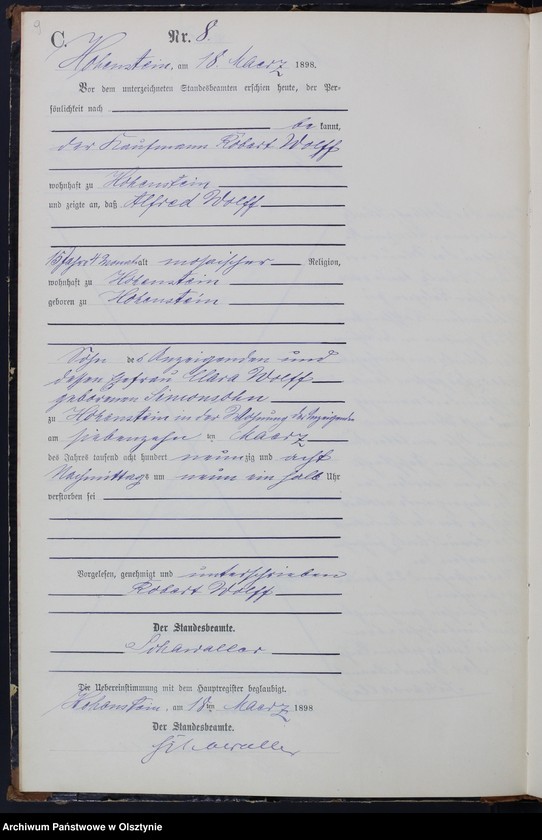 9
C.
Nr. 8.
Hohenstein, am 18. Maerz 1898.
Vor dem unterzeichneten Standesbeamten erschien heute, der Per-
sönlichkeit nach
be kannt,
der Kaufmann Robert Wolff
wohnhaft zu Hohenstein
und zeigte an, daß Alfred Wolff
15 Jahre 4 Monate alt mosaischer Religion,
wohnhaft zu Hohenstein
geboren zu Hohenstein
Sohn des Anzeigenden und
dessen Ehefrau Clara Wolff
geborenen Simonsohn
zu Hohenstein in der Wohnung des Anzeigenden
am siebenzehn ten Maerz
des Jahres tausend acht hundert neunzig und acht
Nachmittags um neun ein halb Uhr
verstorben sei
Vorgelesen, genehmigt und unterschrieben
Robert Wolff
Der Standesbeamte.
Schawaller
Die Uebereinstimmung mit dem Hauptregister beglaubigt.
Hohenstein, am 18ten Maerz 1898
Der Standesbeamte.
Schawaller
Archiwum Państwowe w Olsztynie